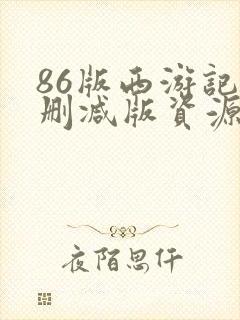 86版西游記
删减版資源
夜陌思仟